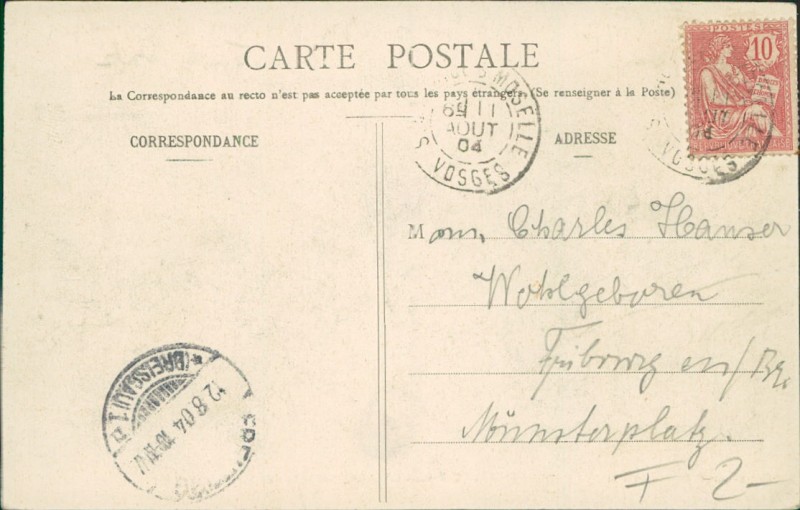 CARTE POSTALE
La Correspondance au recto n'est pas acceptée par tous les pays étrangers (Se renseigner à la Poste)
CORRESPONDANCE
ADRESSE
POSTES
10
MOSELLE
11
AOUT
04
VOSGES
VOSGES
Mons. Charles Hauser
Wohlgeboren
Fribourg en/Bg.
Münsterplatz.
F 2-
(BREISGAU) 1
12.8.04